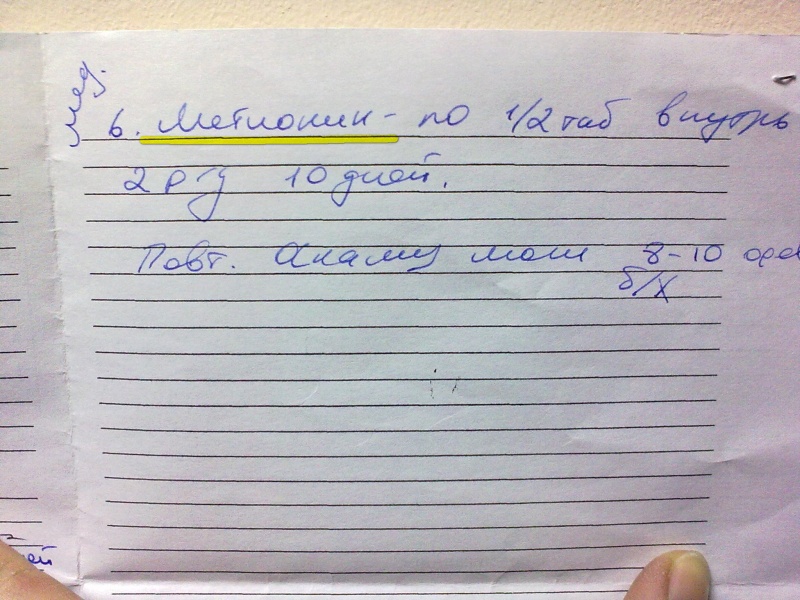 6. Метионин - по 1/2 таб внутрь
2 р/д 10 дней.
Повт. Анализ мочи 8-10
б/х